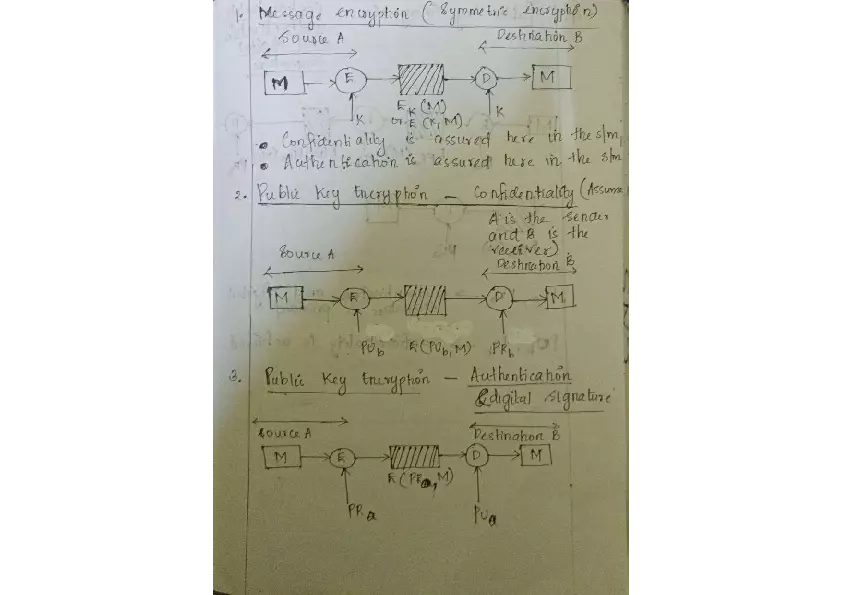 1. Message encryption (Symmetric encryption)
Source A
Destination B
M E D M
K
E_K (M)
or E (K, M)
K
• Confidentiality is assured here in the s/m,
• Authentication is assured here in the s/m
2. Public Key Encryption – Confidentiality (Assume
A is the sender
and B is the
receiver)
Source A
Destination B
M E D M
PU_b E(PU_b, M) PR_b
3. Public Key Encryption – Authentication
& digital signature
Source A
Destination B
M E D M
E(PR_a, M)
PR_a
PU_a